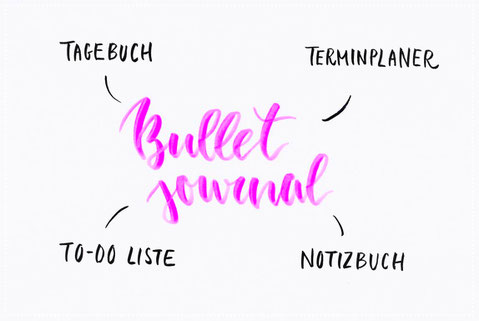 TAGEBUCH
TERMINPLANER
Bullet
journal
TO-DO LISTE
NOTIZBUCH